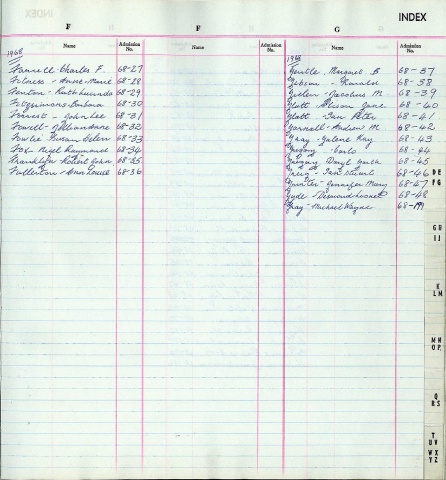 INDEX
F F G
Name Admission No. Name Admission No. Name Admission No.
1968
Farrell - Charles F. 68-27
Fitness - Anne-Marie 68-28
Fenton - Ruth Lucinda 68-29
Fitzsimons - Barbara 68-30
Forrest - John Lee 68-31
Fowell - Jillian Anne 68-32
Fowlie Susan Helen 68-33
Fox - Nigel Raymond 68-34
Franklyn Robert John 68-35
Fullerton - Ann Louise 68-36
1968
Gentle - Margaret B 68-37
Gibson - Harold 68-38
Gillen - Jacobus M. 68-39
Glott Alison Jane 68-40
Glott - Ian Peter 68-41
Gosnell - Andrew M 68-42
Gray - Galene Kay 68-43
68-44
Daryl 68-45
Greig - Ian Stuart 68-46
Gunter - Jennifer Mary 68-47
Gyde - Desmond 68-48
Gray - Michael Wayne 68-199
DE
FG
GH
IJ
K
LM
MN
OP
Q
RS
T
UV
WX
YZ